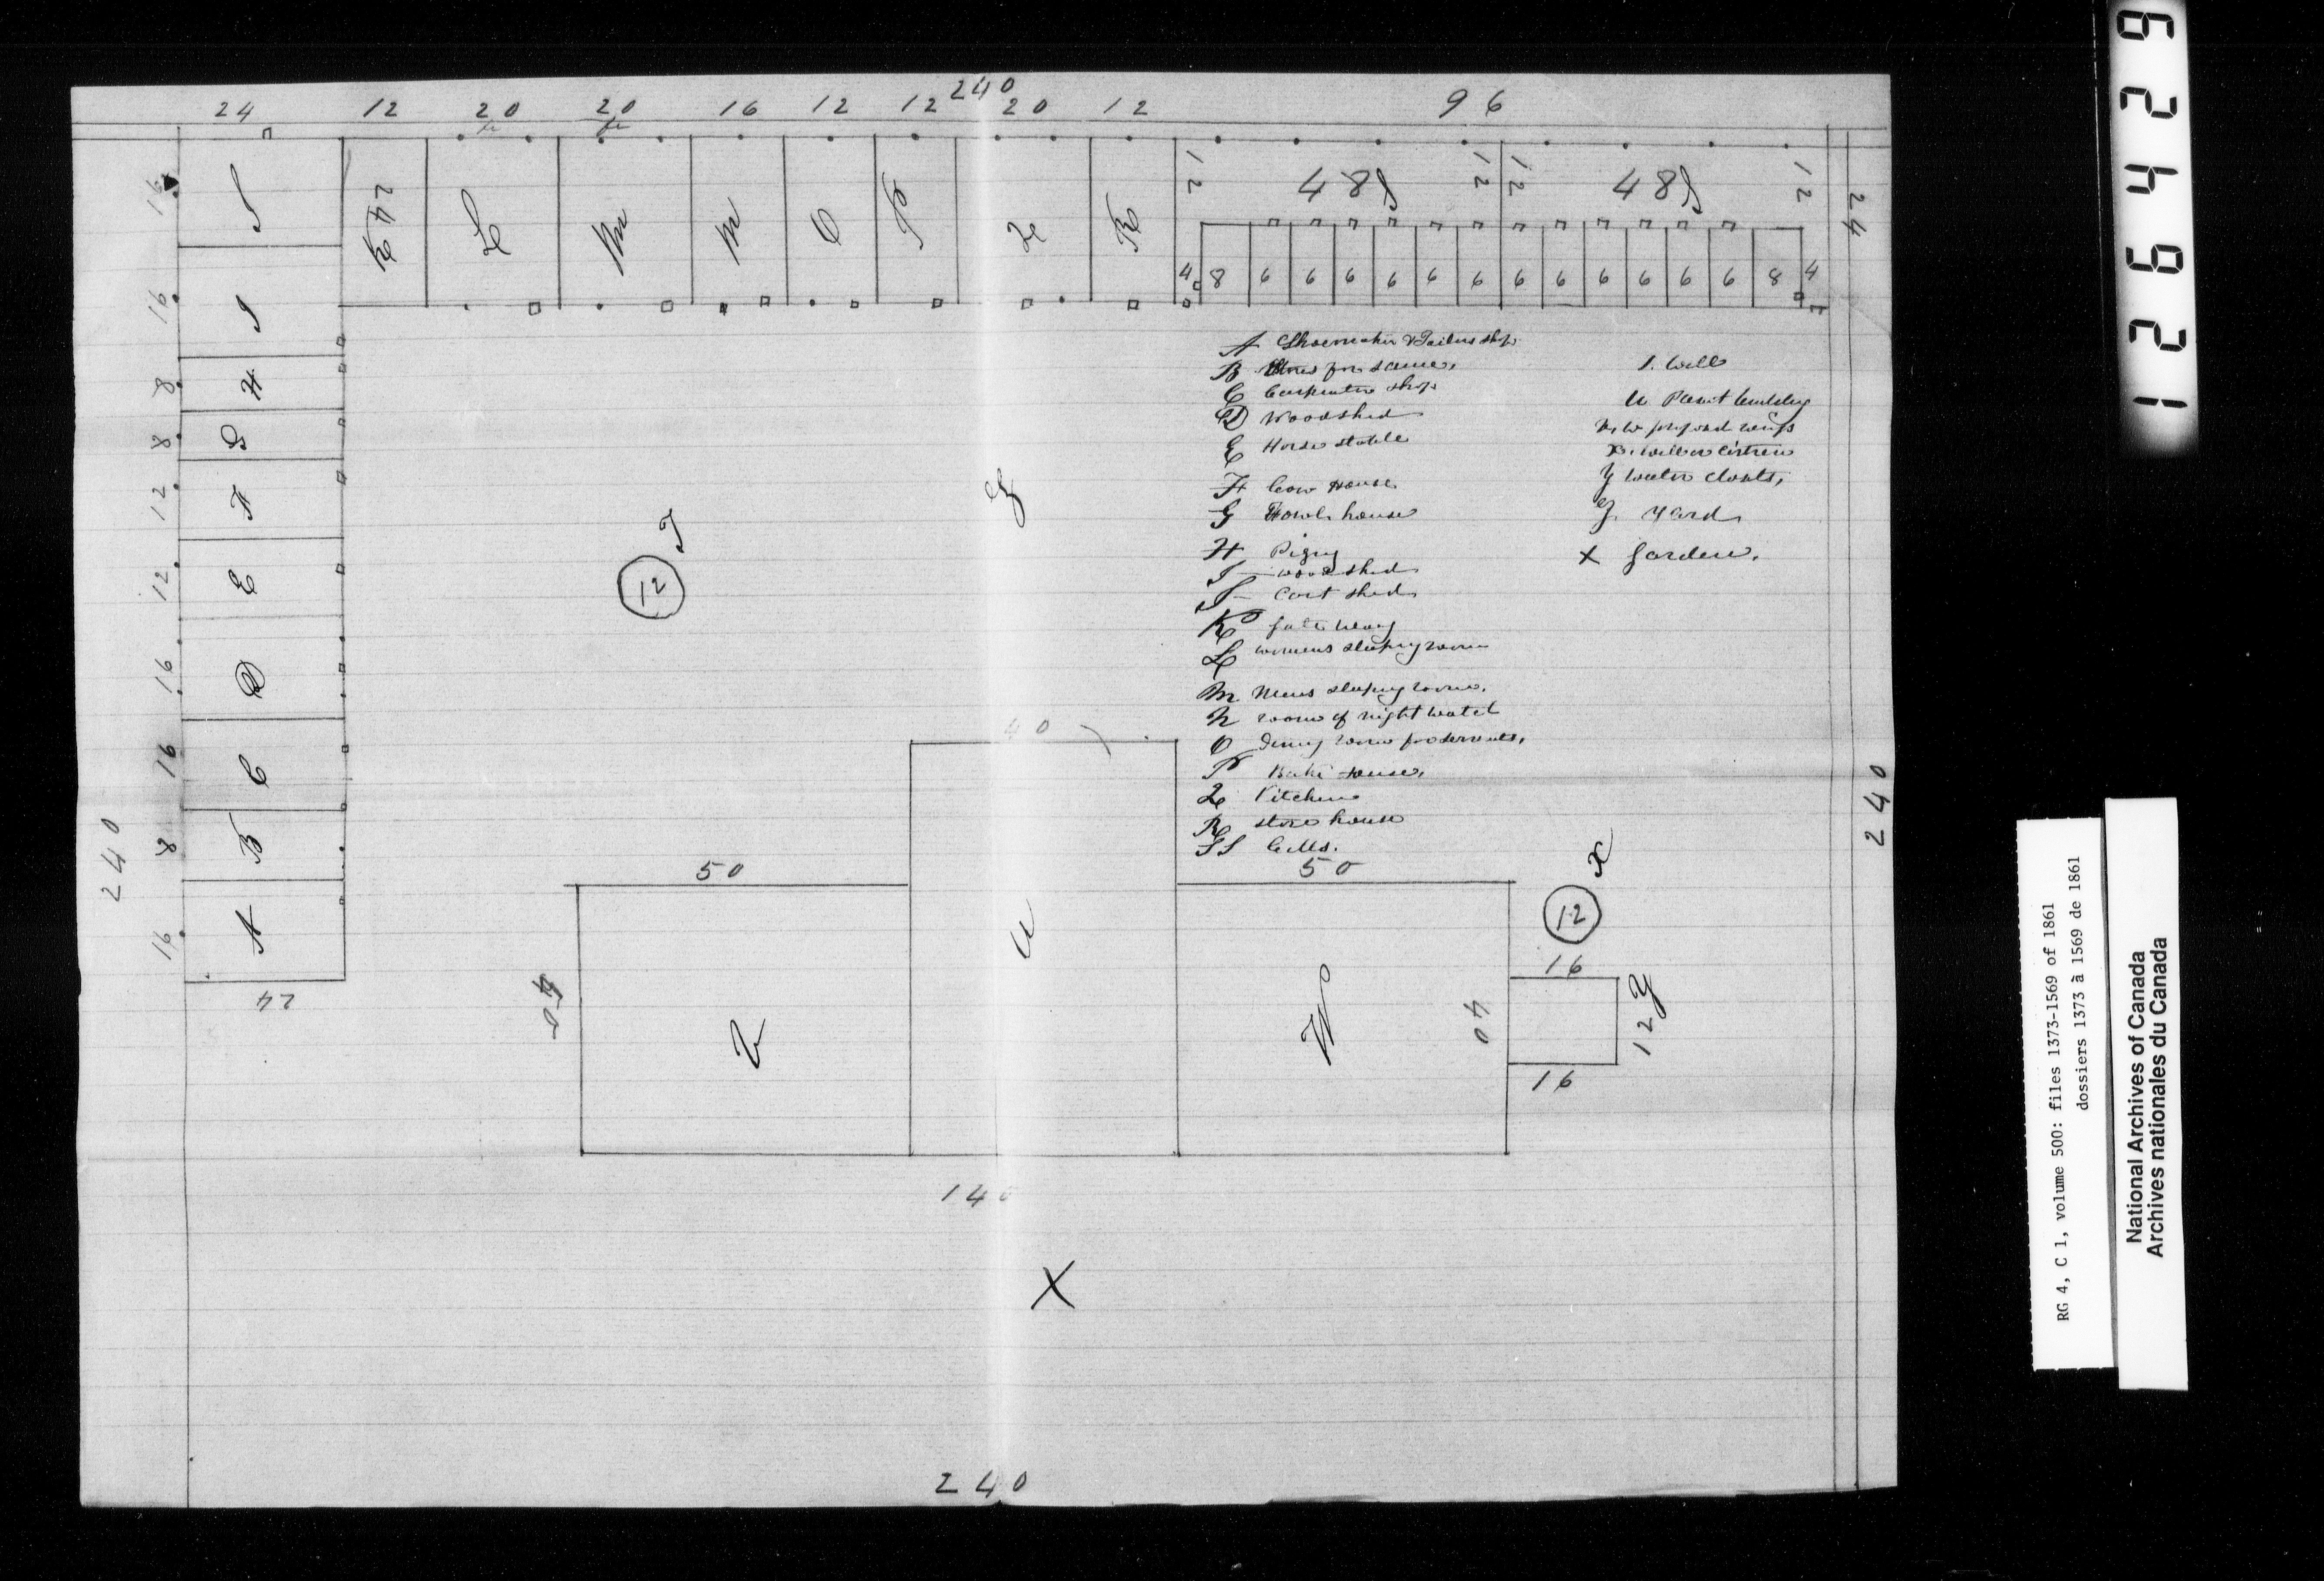 240
24 12 20 20 16 12 12 20 12 96
16 J 24 K L M N O P Q R 12 48 S 12 12 48 S 12 24
4 8 6 6 6 6 6 6 6 6 6 6 6 6 8 4
16 I
8 H
8 G
12 F
12 E
16 D
16 C
8 B
16 A
24
240
12 T
Z
A Shoemaker & Tailors shop
B Stores for same,
C Carpenters shop
D Woodshed
E Horse stable
F Cow House
G Fowls house
H Pigry
I - woodshed
J - Cart shed
K gate way
L womens sleeping room
M Mens sleeping rooms,
N rooms of night watch
O Dining room for servants,
P Bake House,
Q Kitchen
R store house
SS Cells.
T. Well
U Panit building
V, W proposed wings
X. well or Cistern
Y water closets,
Z. Yard
X Garden.
40
50 50
40 V U W 40
12 X
16
12 Y
16
140
240
X
240
126429
RG 4, C 1, volume 500: files 1373-1569 of 1861
dossiers 1373 à 1569 de 1861
National Archives of Canada
Archives nationales du Canada